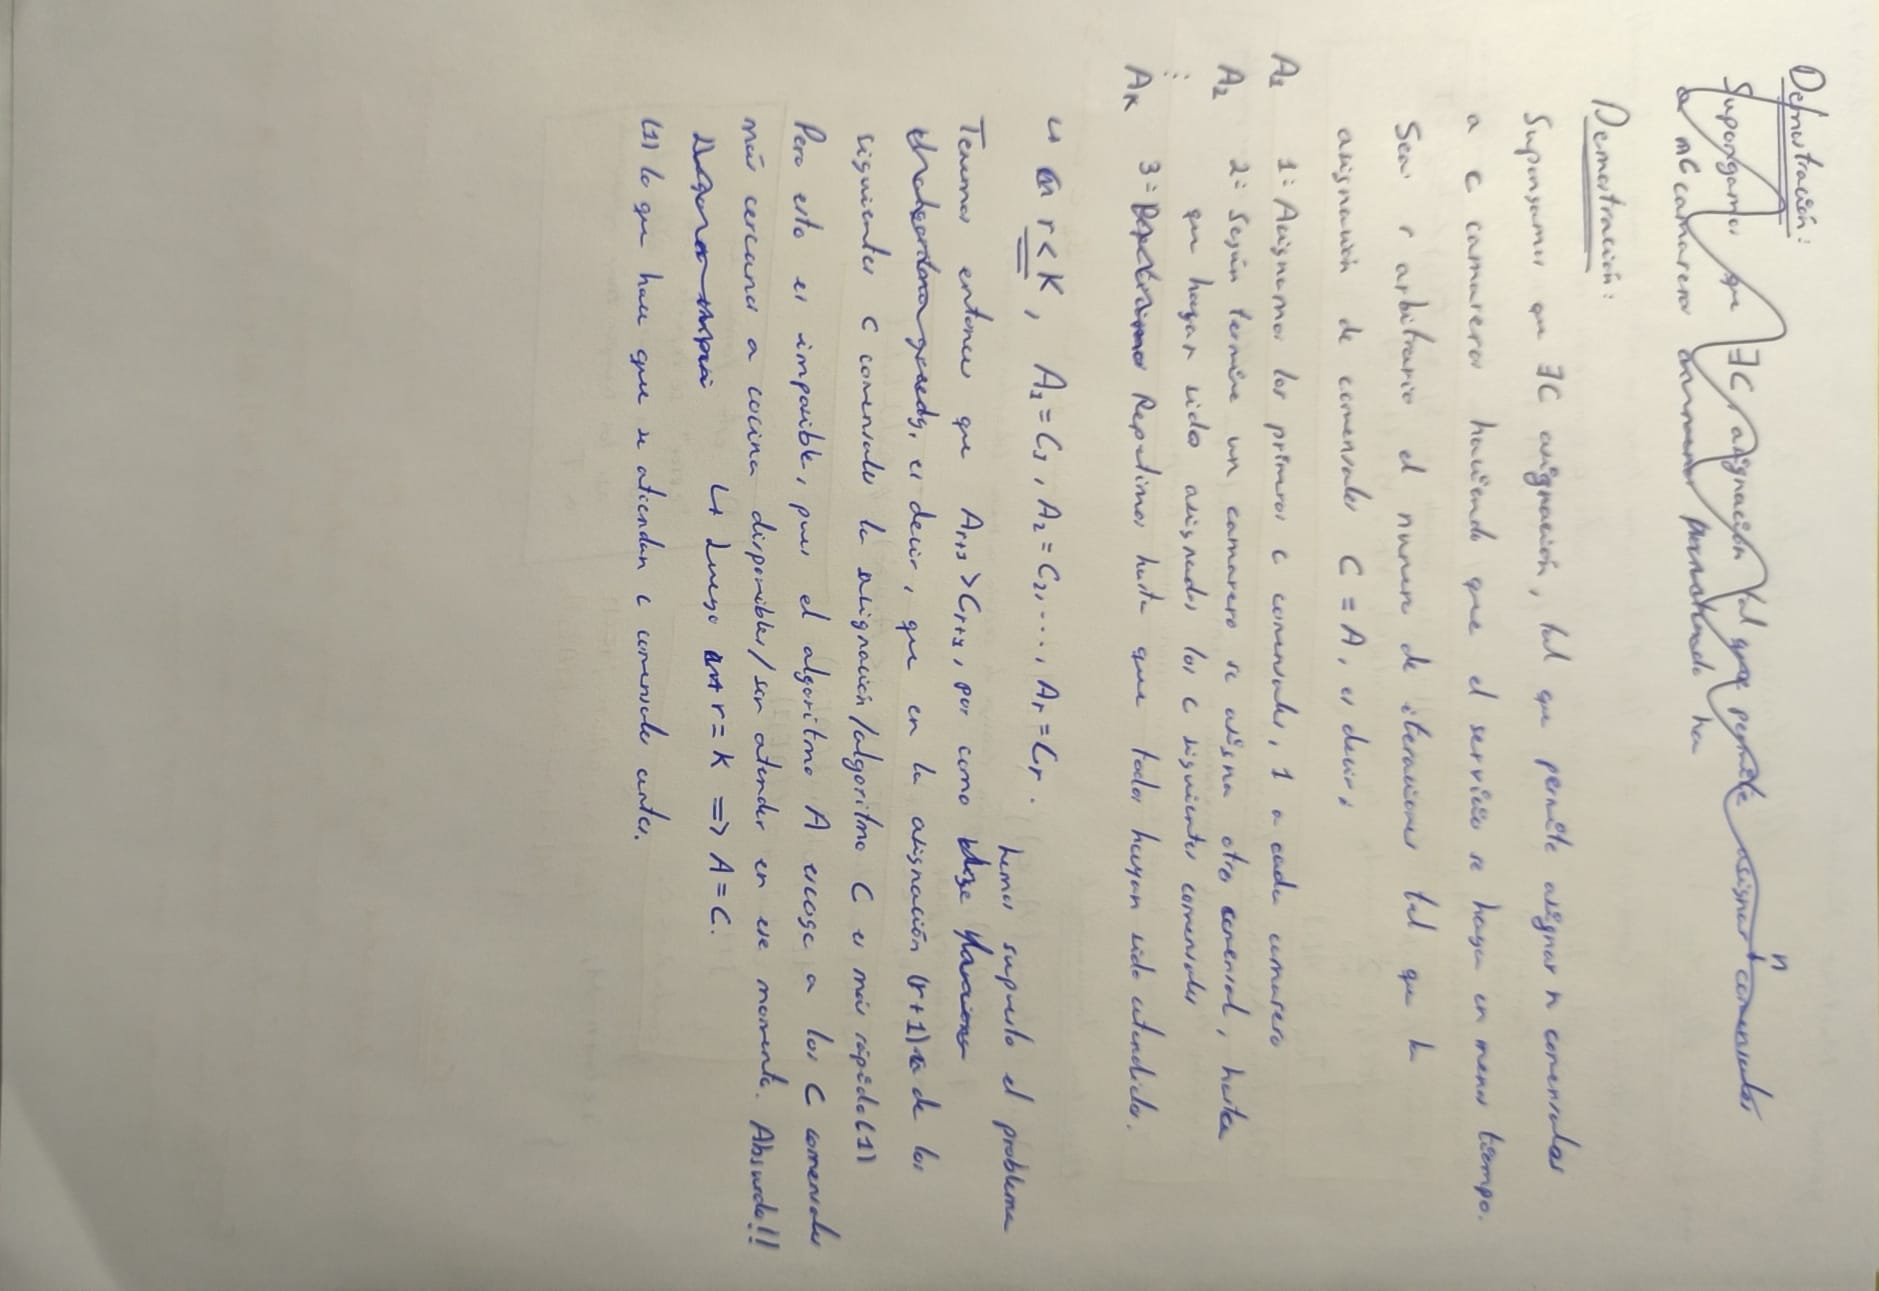 Demostración:
Supongamos que ∃C asignación tal que permite asignar n comensales
a mC camareros
Demostración:
Supongamos que ∃C asignación, tal que permite asignar n comensales
a c camareros haciendo que el servicio se haga en menos tiempo.
Sea r arbitrario el numero de iteraciones tal que la
asignación de comensales C = A, es decir,
A₁ 1: Asignamos los primeros c comensales, 1 a cada camarero
A₂ 2: Según termine un camarero se asigna otro comensal, hasta
⋮ que hayan sido asignados los c siguientes comensales
Aₖ 3: Repetimos hasta que todos hayan sido atendidos.
↳ r < K, A₁ = C₁, A₂ = C₂, ..., Aᵣ = Cᵣ.
hemos supuesto el problema
Tenemos entonces que Aᵣ₊₁ > Cᵣ₊₁, por como
es decir, que en la asignación (r+1) de los
siguientes C comensales la asignación/algoritmo C es más rápido (1)
Pero esto es imposible, pues el algoritmo A escoge a los C comensales
más cercanos a cocina disponibles/sin atender en ese momento. Absurdo!!
↳ Luego r = K => A = C.
(1) lo que hace que se atiendan c comensales antes.